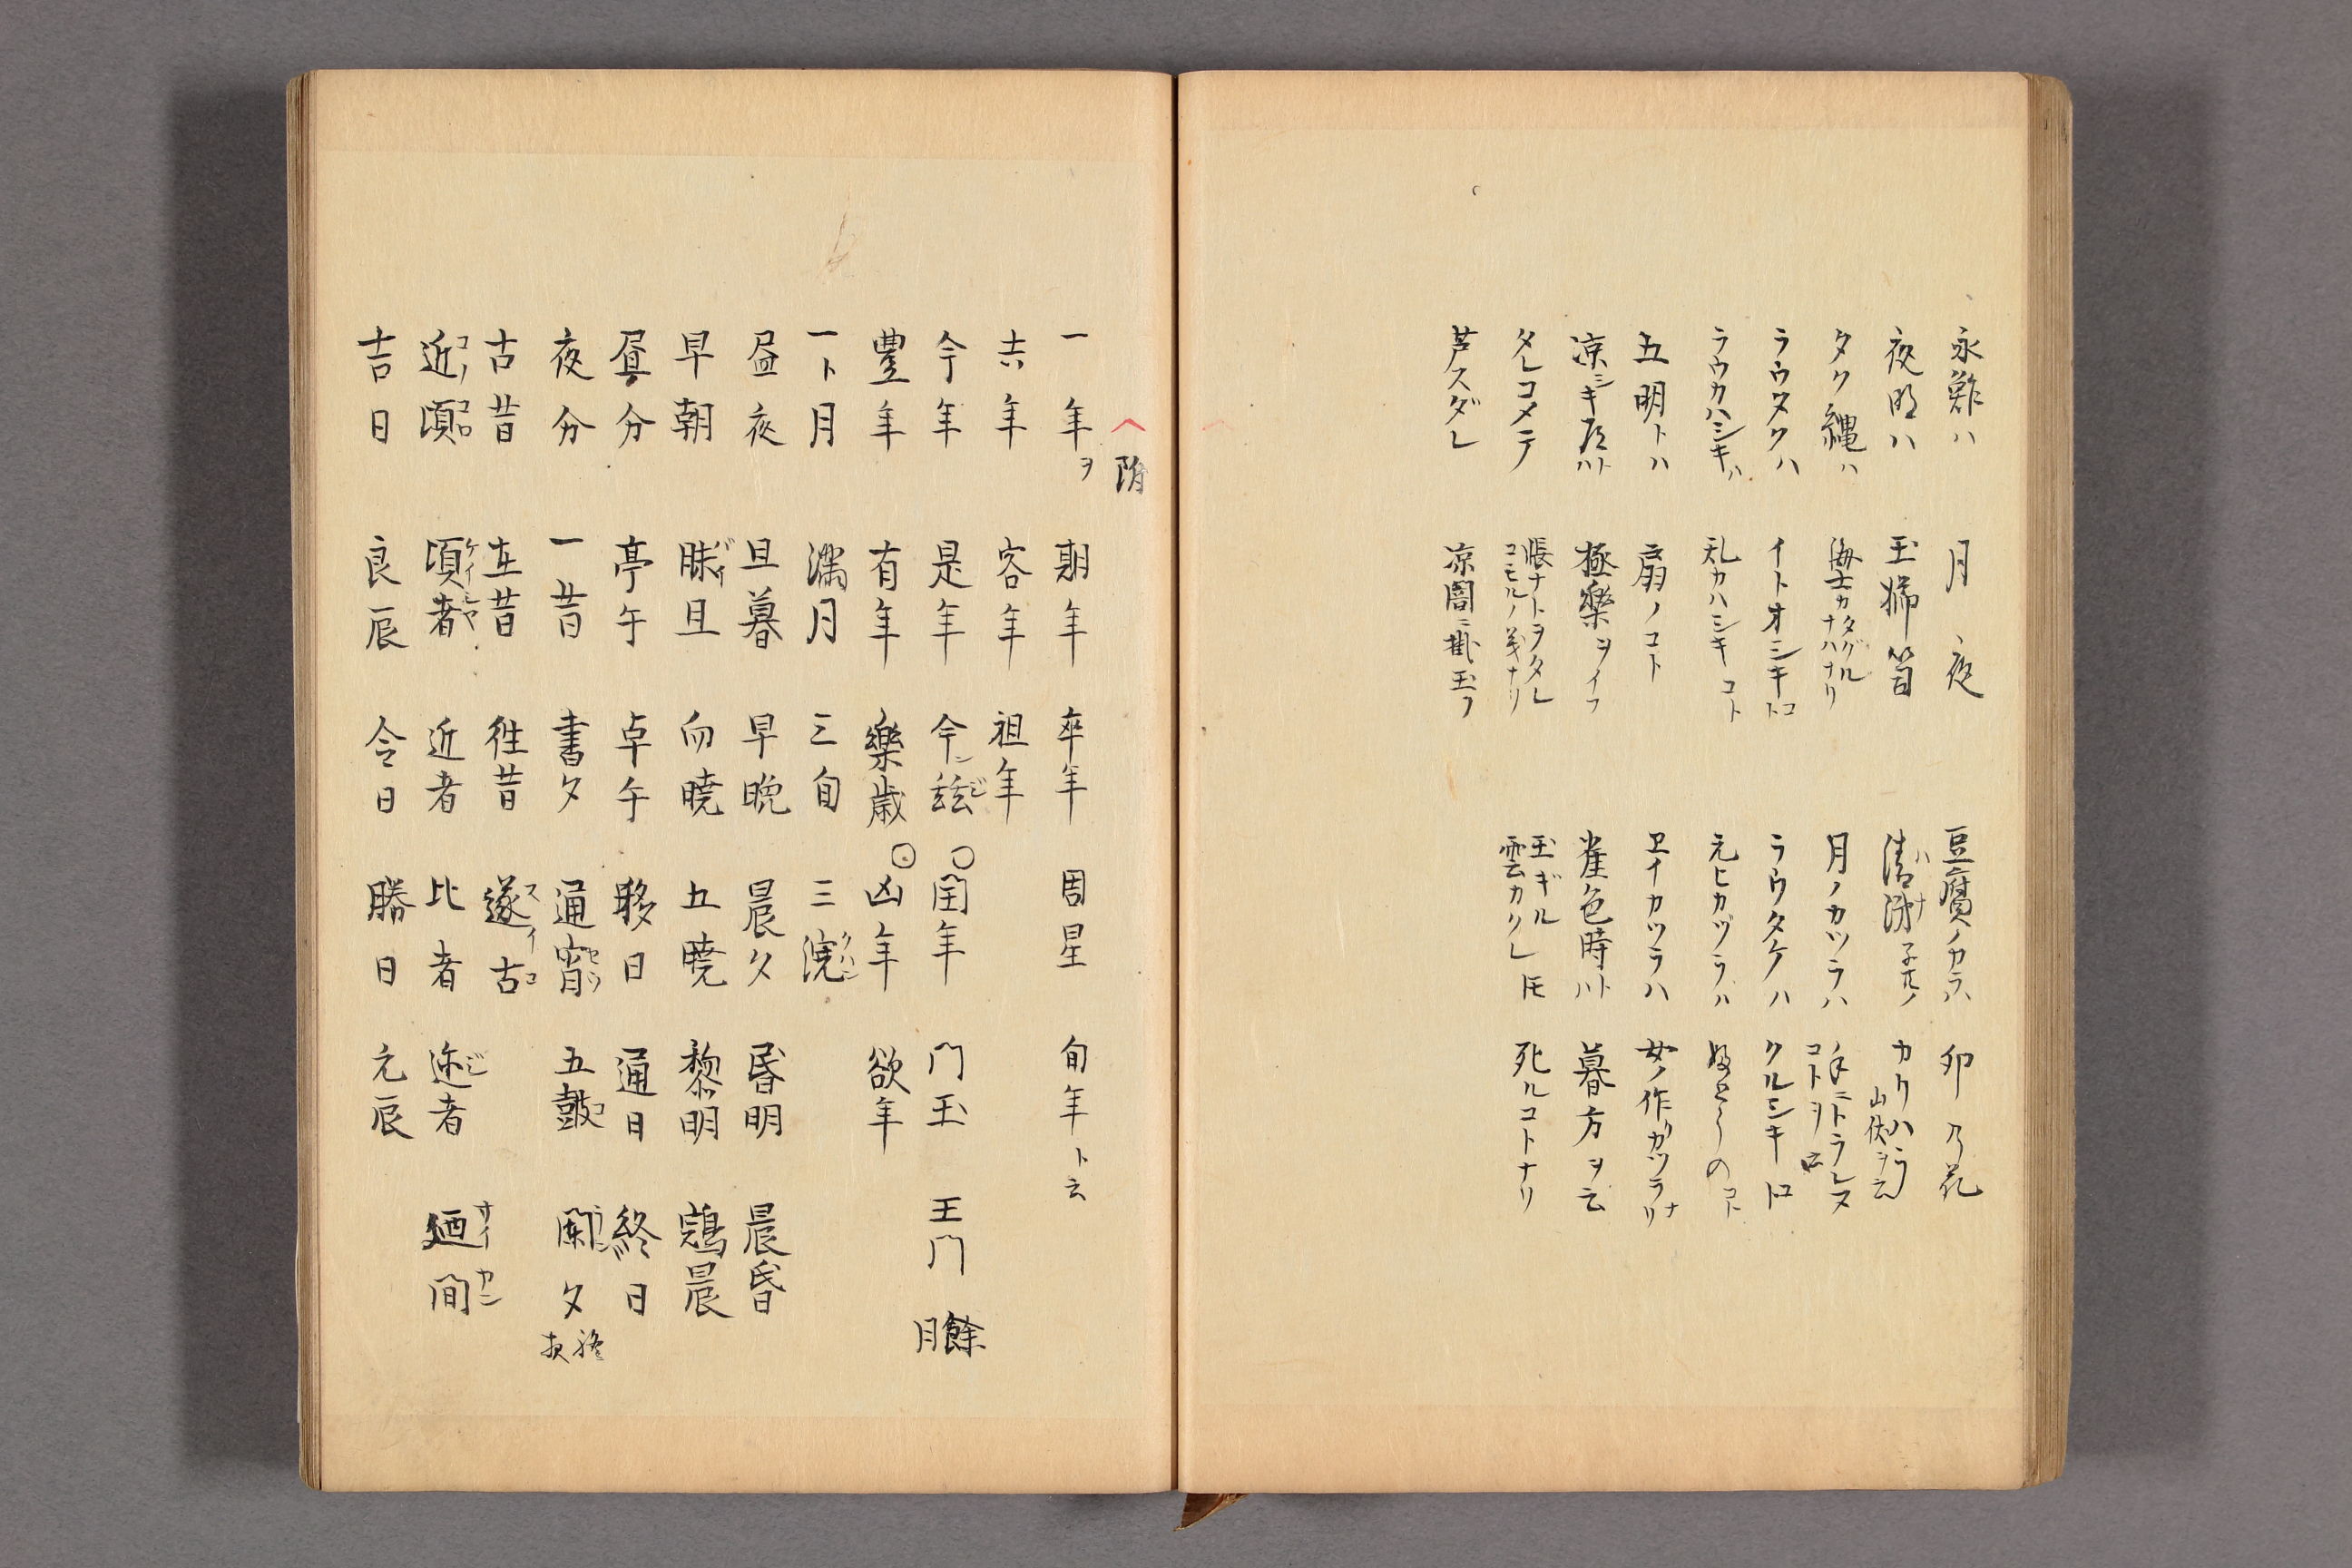 永難ハ 月夜 豆腐ノカラハ 卯乃花
夜明ハ 玉箒 清涕ヲ カリハラ 山伏ヲ云
タク縄ハ 海士カタグル ナハナリ 月ノカツラハ 手ニトラレヌ コトヲ云
ラウタクハ イトオシキコト ラウタケハ クルシキ
ラウカハシキハ 乱カハシキコト 元ヒカヅラハ のコト
五明トハ 扇ノコト ヱイカツラハ 女ノ作リカツラナリ
涼シキ 極樂ヲイフ 雀色時トハ 暮方ヲ云
タレコメテ 帳ナトヲタレ コモルノ義ナリ 玉ギル 雲カクレ 死ルコトナリ
芦スダレ 凉闇ニ掛玉フ
附
一年ヲ 期年 卒年 周星 旬年ト云
去年 客年 祖年
今年 是年 今玆 ○閏年 門王 王門 餘月
豊年 有年 樂歳 ○凶年 欲年
一ト月 満月 三旬 三浣
昼夜 旦暮 早晩 晨夕 昏明 晨昏
早朝 昧旦 向曉 五曉 黎明 鶏晨
昼分 亭午 卓午 移日 通日 終日
夜分 一昔 書夕 通宵 五鼓 闌夕
古昔 在昔 往昔 邃古
近頃 頃者 近者 比者 迩者 廼間
吉日 良辰 令日 勝日 元辰